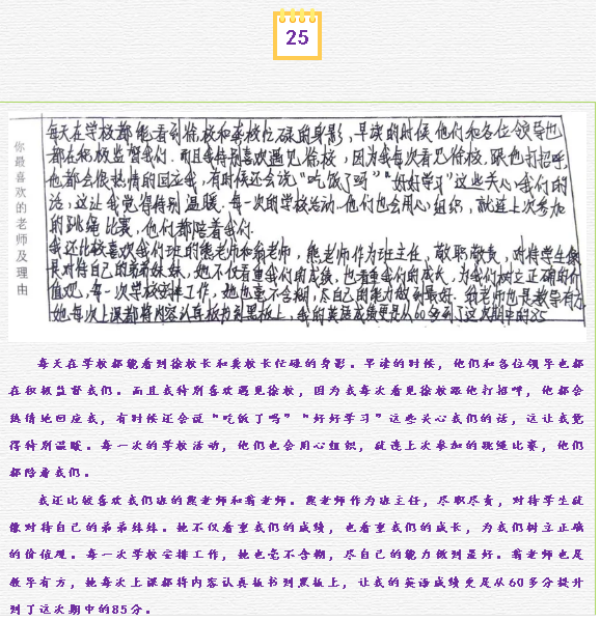 25
你最喜欢的老师及理由
每天在学校都能看到徐校和龚校忙碌的身影,早读的时候他们和各位领导也
都在积极监督我们.而且我特别喜欢遇见徐校,因为我每次看见徐校,跟他打招呼,
他都会很热情的回应我,有时候还会说“吃饭了吗”“好好学习”这些关心我们的
话,这让我觉得特别温暖.每一次的学校活动,他们也会用心组织,就连上次参加
的跳绳比赛,他们都陪着我们.
我还比较喜欢我们班的熊老师和翁老师,熊老师作为班主任,敬职敬责,对待学生像
是对待自己的弟弟妹妹,她不仅看重我们的成绩,也看重我们的成长,为我们树立正确的价
值观,每一次学校安排工作,她也毫不含糊,尽自己的能力做到最好.翁老师也是教导有方
她每次上课都将内容认真板书到黑板上,我的英语成绩更是从60多到了这次期中的85
每天在学校都能看到徐校长和龚校长忙碌的身影。早读的时候,他们和各位领导也都
在积极监督我们。而且我特别喜欢遇见徐校,因为我每次看见徐校跟他打招呼,他都会
热情地回应我,有时候还会说“吃饭了吗”“好好学习”这些关心我们的话,这让我觉
得特别温暖。每一次的学校活动,他们也会用心组织,就连上次参加的跳绳比赛,他们
都陪着我们。
我还比较喜欢我们班的熊老师和翁老师。熊老师作为班主任,尽职尽责,对待学生就
像对待自己的弟弟妹妹。她不仅看重我们的成绩,也看重我们的成长,为我们树立正确
的价值观。每一次学校安排工作,她也毫不含糊,尽自己的能力做到最好。翁老师也是
教导有方,她每次上课都将内容认真板书到黑板上,让我的英语成绩更是从60多分提升
到了这次期中的85分。